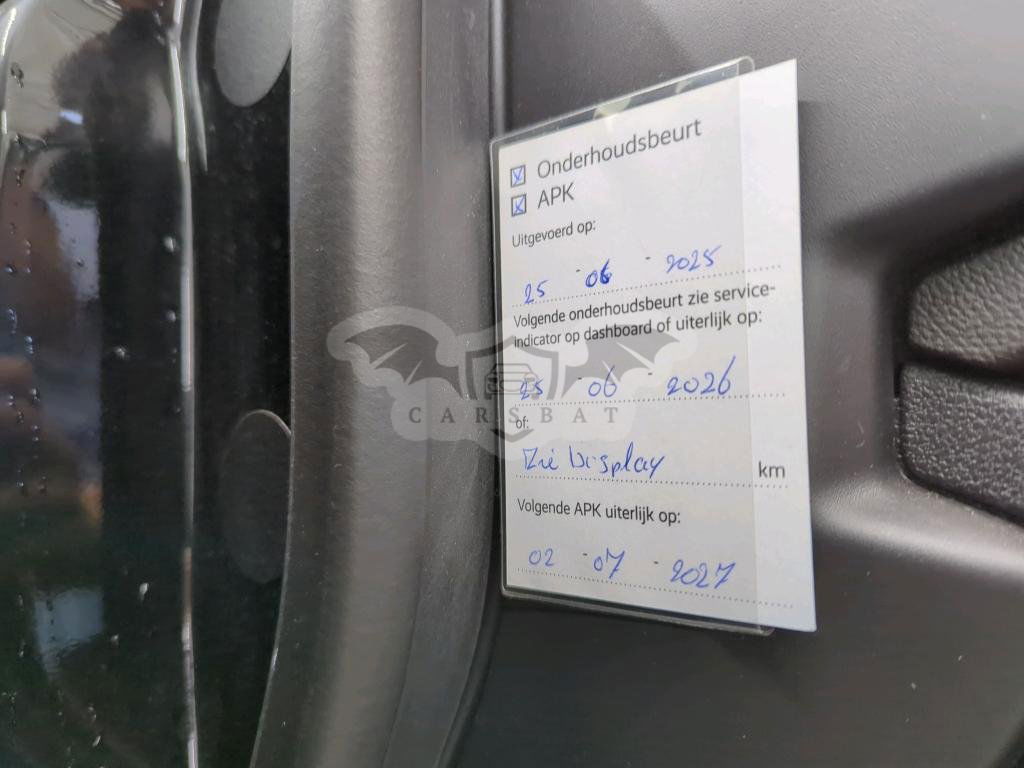 Onderhoudsbeurt
APK
Uitgevoerd op:
25 - 06 - 2025
Volgende onderhoudsbeurt zie service-
indicator op dashboard of uiterlijk op:
25 - 06 - 2026
CARSBAT
of:
Zie Display km
Volgende APK uiterlijk op:
02 - 07 - 2027